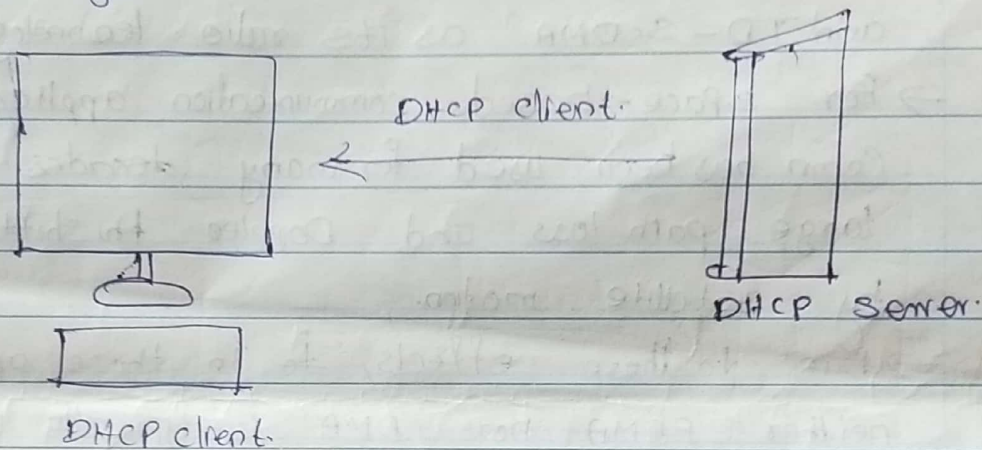 DHCP client.
DHCP Server.
DHCP client.